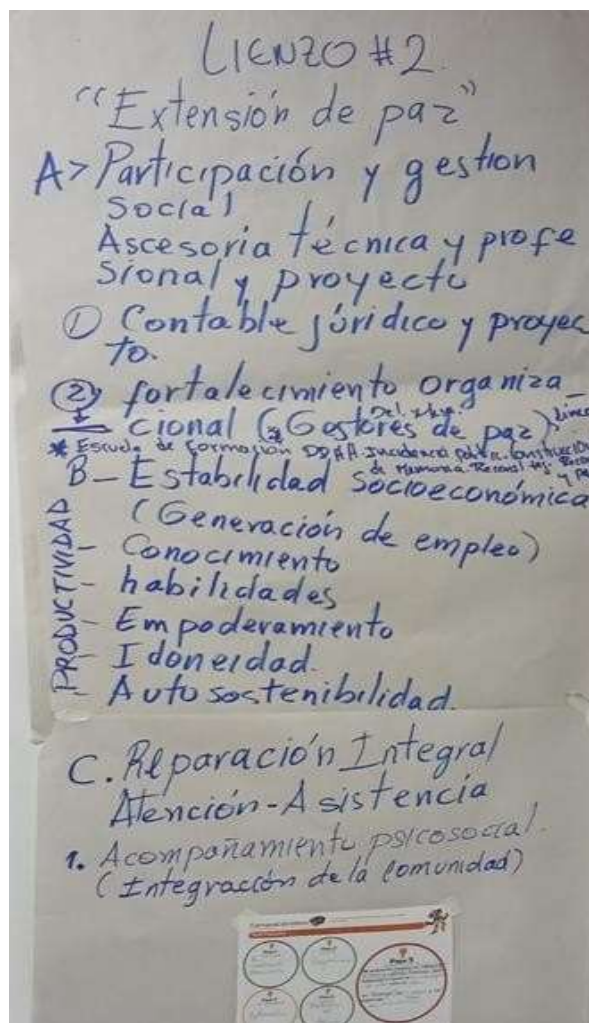 LIENZO #2.
"Extensión de paz"
A> Participación y gestion
social
Ascesoria técnica y profe
sional y proyecto
① Contable júridico y proyec
to.
② fortalecimiento organiza_
cional (Gestores de paz)
* Escuela de formación DDHH. Incidencia
de Memoria
B- Estabilidad socioeconómica
(Generación de empleo)
PRODUCTIVIDAD
- Conocimiento
- habilidades
- Empoderamiento
- Idoneidad.
- Autosostenibilidad.
C. Reparación Integral
Atención-Asistencia
1. Acompañamiento psicosocial.
(Integracción de la comunidad)